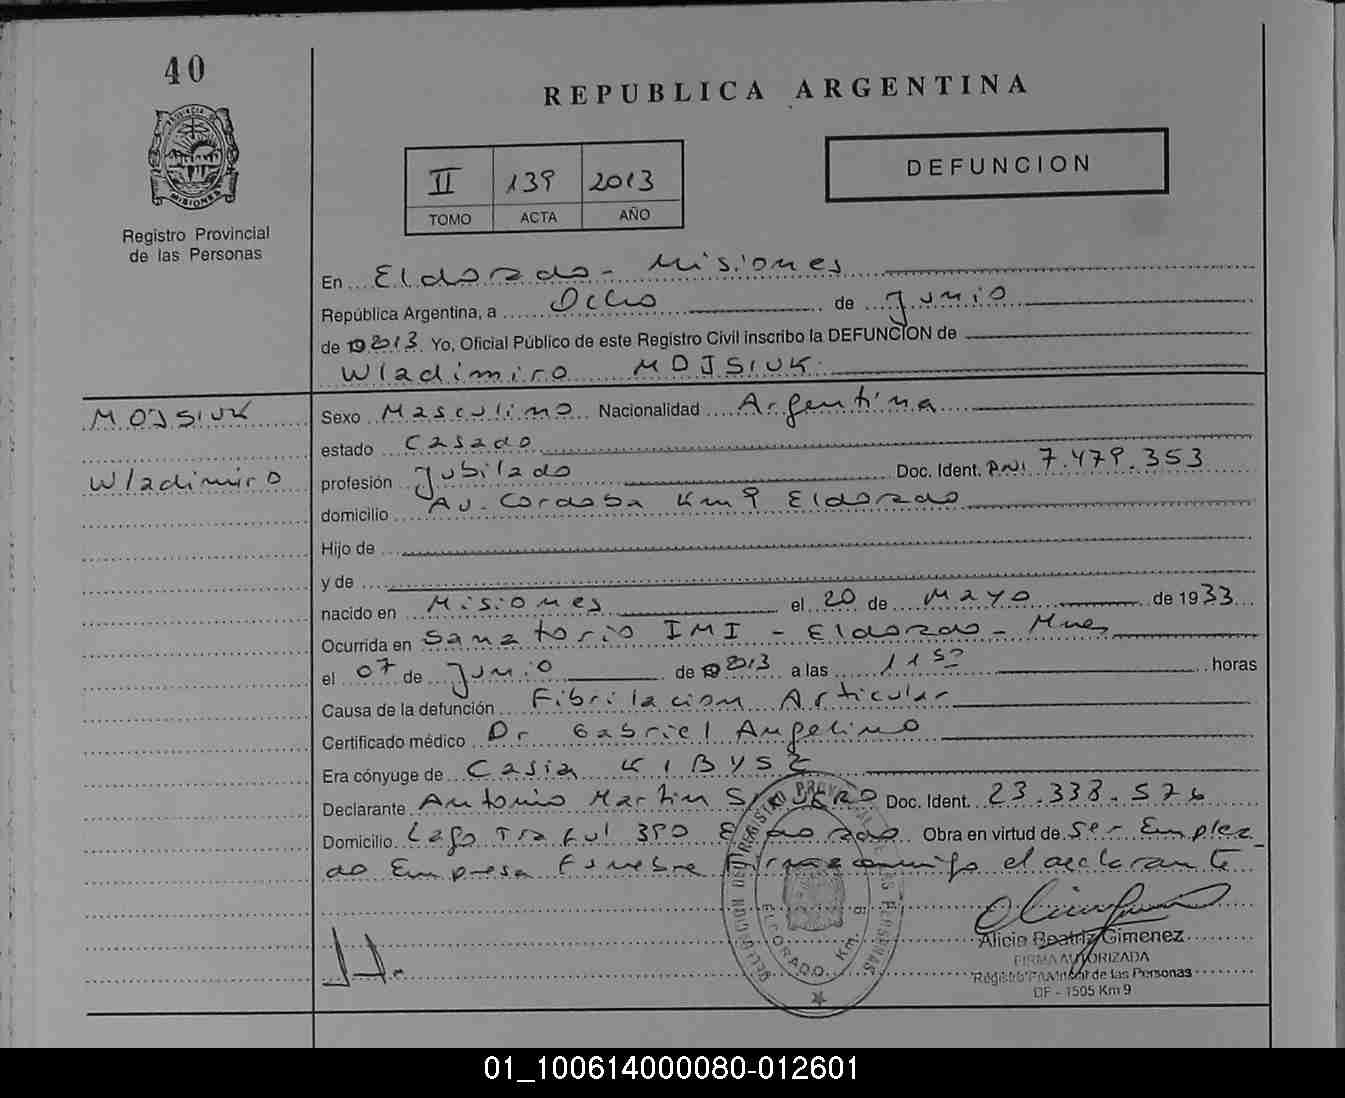 40
PROVINCIA DE
MISIONES
Registro Provincial
de las Personas
REPUBLICA ARGENTINA
II 139 2013
TOMO ACTA AÑO
DEFUNCION
En Eldorado - Misiones
República Argentina, a Ocho de Junio
de 2013 Yo, Oficial Público de este Registro Civil inscribo la DEFUNCION de
Wladimiro MOJSIUK
MOJSIUK
Wladimiro
Sexo Masculino Nacionalidad Argentina
estado Casado
profesión Jubilado Doc. Ident. DNI 7.479.353
domicilio Av. Cordoba Km 9 Eldorado
Hijo de
y de
nacido en Misiones el 20 de Mayo de 1933
Ocurrida en Sanatorio IMI - Eldorado - Mnes
el 07 de Junio de 2013 a las 11 horas
Causa de la defunción Fibrilacion Articular
Certificado médico Dr Gabriel Angelino
Era cónyuge de Casia KIBYSZ
Declarante Antonio Martin Doc. Ident. 23.338.576
Domicilio Lago Traful 390 Eldorado Obra en virtud de Ser Emplea_
do Empresa Funebre Firma conmigo el declarante
ELDORADO Km.
Alicia Beatriz Gimenez
FIRMA AUTORIZADA
Registro Provincial de las Personas
OF - 1505 Km 9
01_100614000080-012601